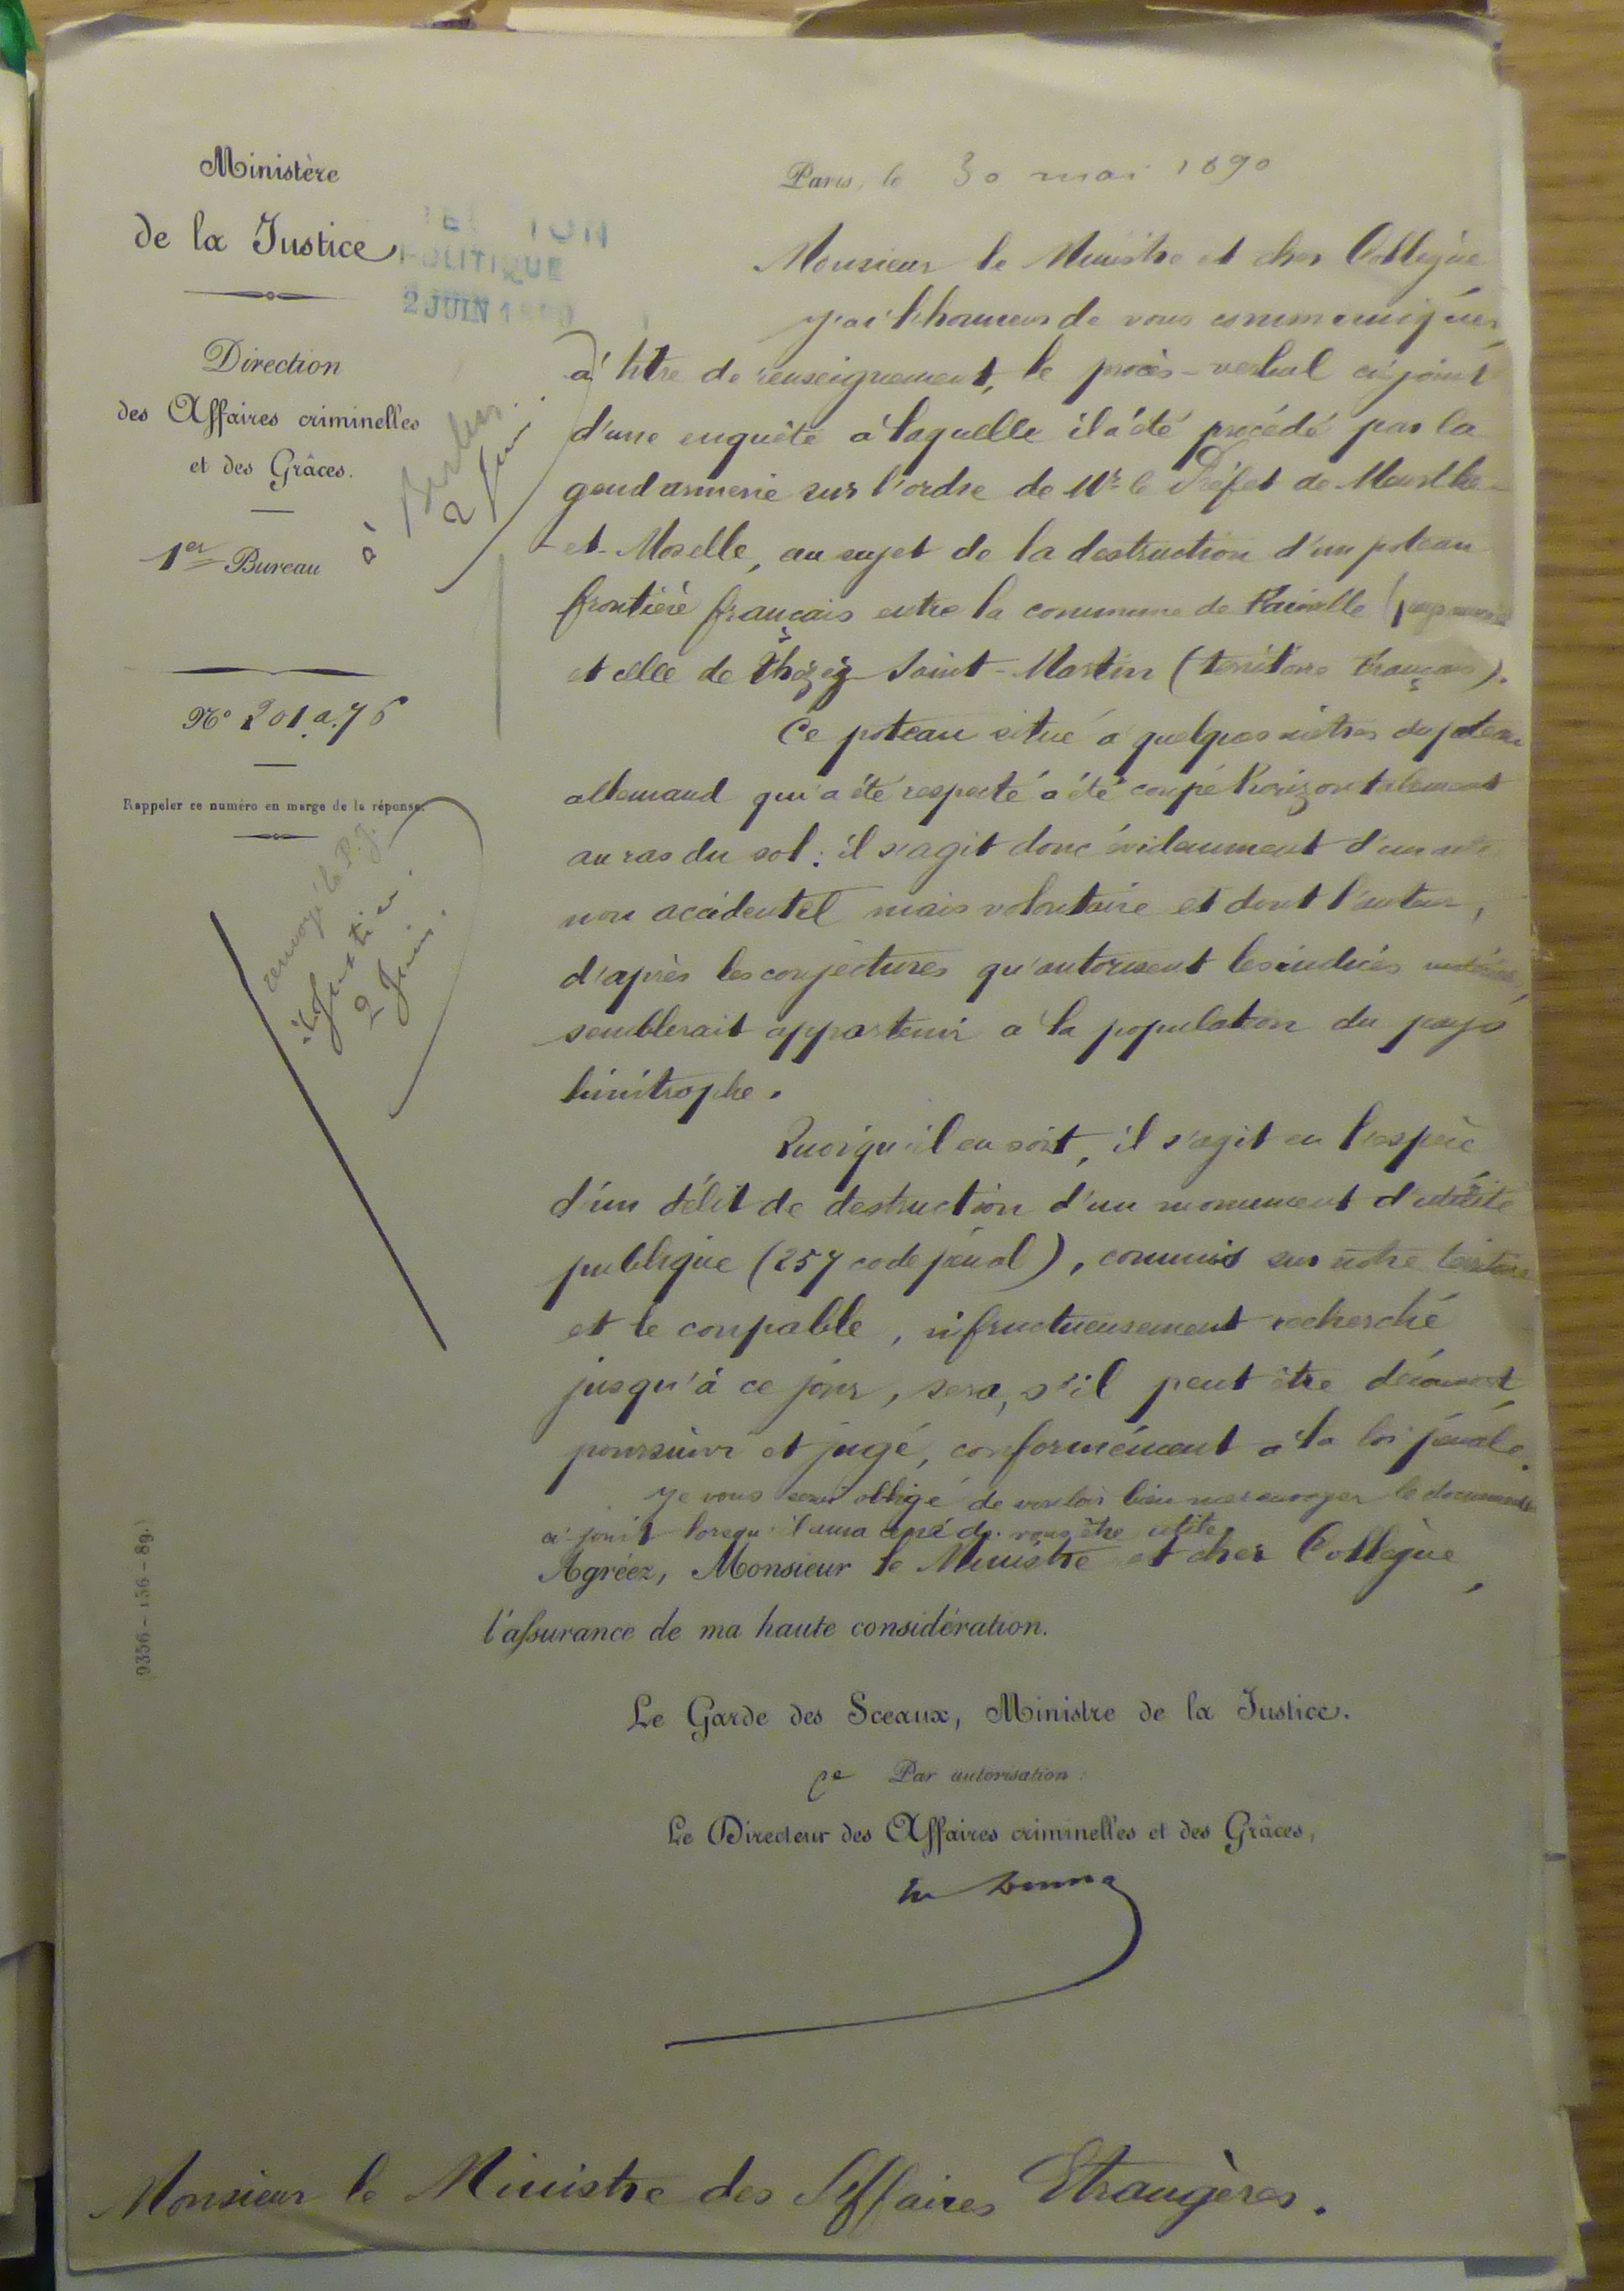 Ministère
de la Justice
Direction
des Affaires criminelles
et des Grâces.
1er Bureau
N° 201.a.76
Rappeler ce numéro en marge de la réponse.
POLITIQUE
2 JUIN 1890
à Berlin
2 Juin.
renvoyé le P.J.
Justice.
2 Juin.
(9356-136-89.)
Paris, le 30 mai 1890
Monsieur le Ministre et cher Collègue
J'ai l'honneur de vous communiquer,
à titre de renseignement, le procès-verbal ci-joint
d'une enquête à laquelle il a été procédé par la
gendarmerie sur l'ordre de Mr le Préfet de Meurthe-
et-Moselle, au sujet de la destruction d'un poteau
frontière français entre la commune de
et celle de Saint-Martin (territoire français).
Ce poteau situé à quelques mètres du poteau
allemand qui a été respecté a été coupé horizontalement
au ras du sol : il s'agit donc évidemment d'un acte
non accidentel mais volontaire et dont l'auteur,
d'après les conjectures qu'autorisent les indices
semblerait appartenir à la population du pays
limitrophe.
Quoiqu'il en soit, il s'agit en l'espèce
d'un délit de destruction d'un monument d'utilité
publique (257 code pénal), commis sur notre territoire
et le coupable, infructueusement recherché
jusqu'à ce jour, sera, s'il peut être découvert,
poursuivi et jugé, conformément à la loi pénale.
Je vous serai obligé de vouloir bien me renvoyer le document
ci-joint lorsqu'il aura cessé de vous être utile
Agréez, Monsieur le Ministre et cher Collègue,
l'assurance de ma haute considération.
Le Garde des Sceaux, Ministre de la Justice.
Par autorisation :
Le Directeur des Affaires criminelles et des Grâces,
Monsieur le Ministre des Affaires Etrangères.